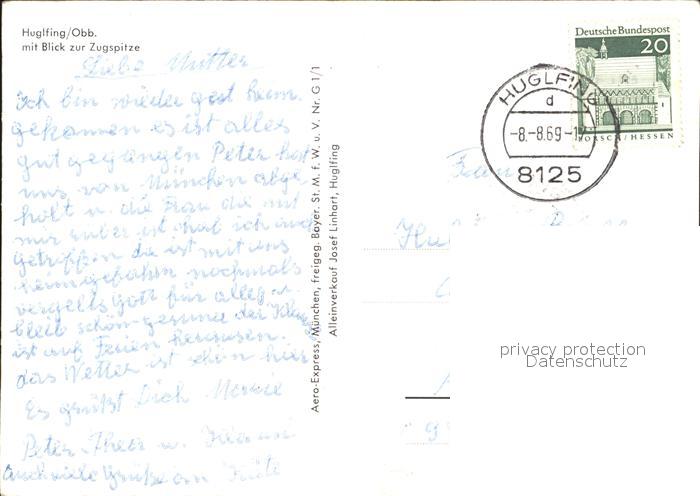 Huglfing/Obb.
mit Blick zur Zugspitze
Liebe Mutter
Ich bin wieder gut heim
gekomen es ist alles
gut gegangen Peter hat
uns von München abge
holt u. die Frau die mit
mir rüber ist hab ich auch
getroffen die ist mit uns
heimgefahrn nochmals
vergelts Gott für alles u.
bleib schön gesund der Klaus
ist auf Ferien heraussen.
das Wetter ist schön hier
Es grüßt Dich
Peter u.
auch viele Grüße an
Aero-Express, München, freigeg. Bayer. St. M. f. W. u. V. Nr. G 1/1
Alleinverkauf Josef Linhart, Huglfing
Deutsche Bundespost
20
LORSCH/HESSEN
HUGLFING
d
-8.-8.69-1
8125
privacy protection
Datenschutz